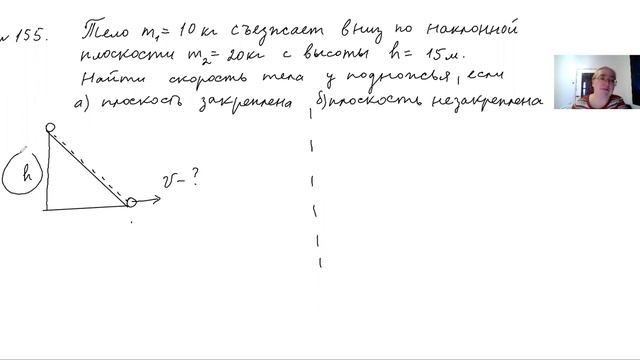 № 155. Тело m₁ = 10 кг съезжает вниз по наклонной
плоскости m₂ = 20 кг с высоты h = 15 м.
Найти скорость тела у подножья, если
а) плоскость закреплена б) плоскость незакреплена
h
v - ?